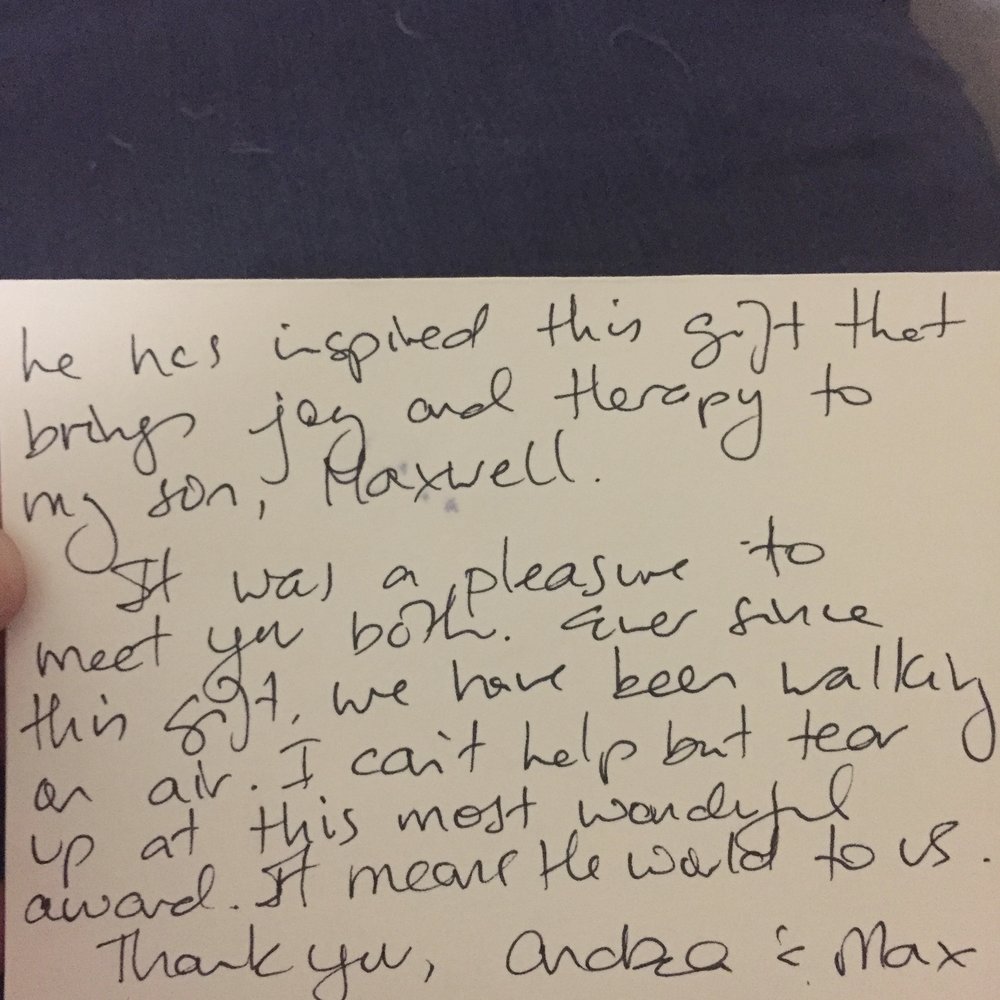 he has inspired this gift that
brings joy and therapy to
my son, Maxwell.
It was a pleasure to
meet you both. Ever since
this gift, we have been walking
on air. I can't help but tear
up at this most wonderful
award. It means the world to us.
Thank you, Andrea & Max